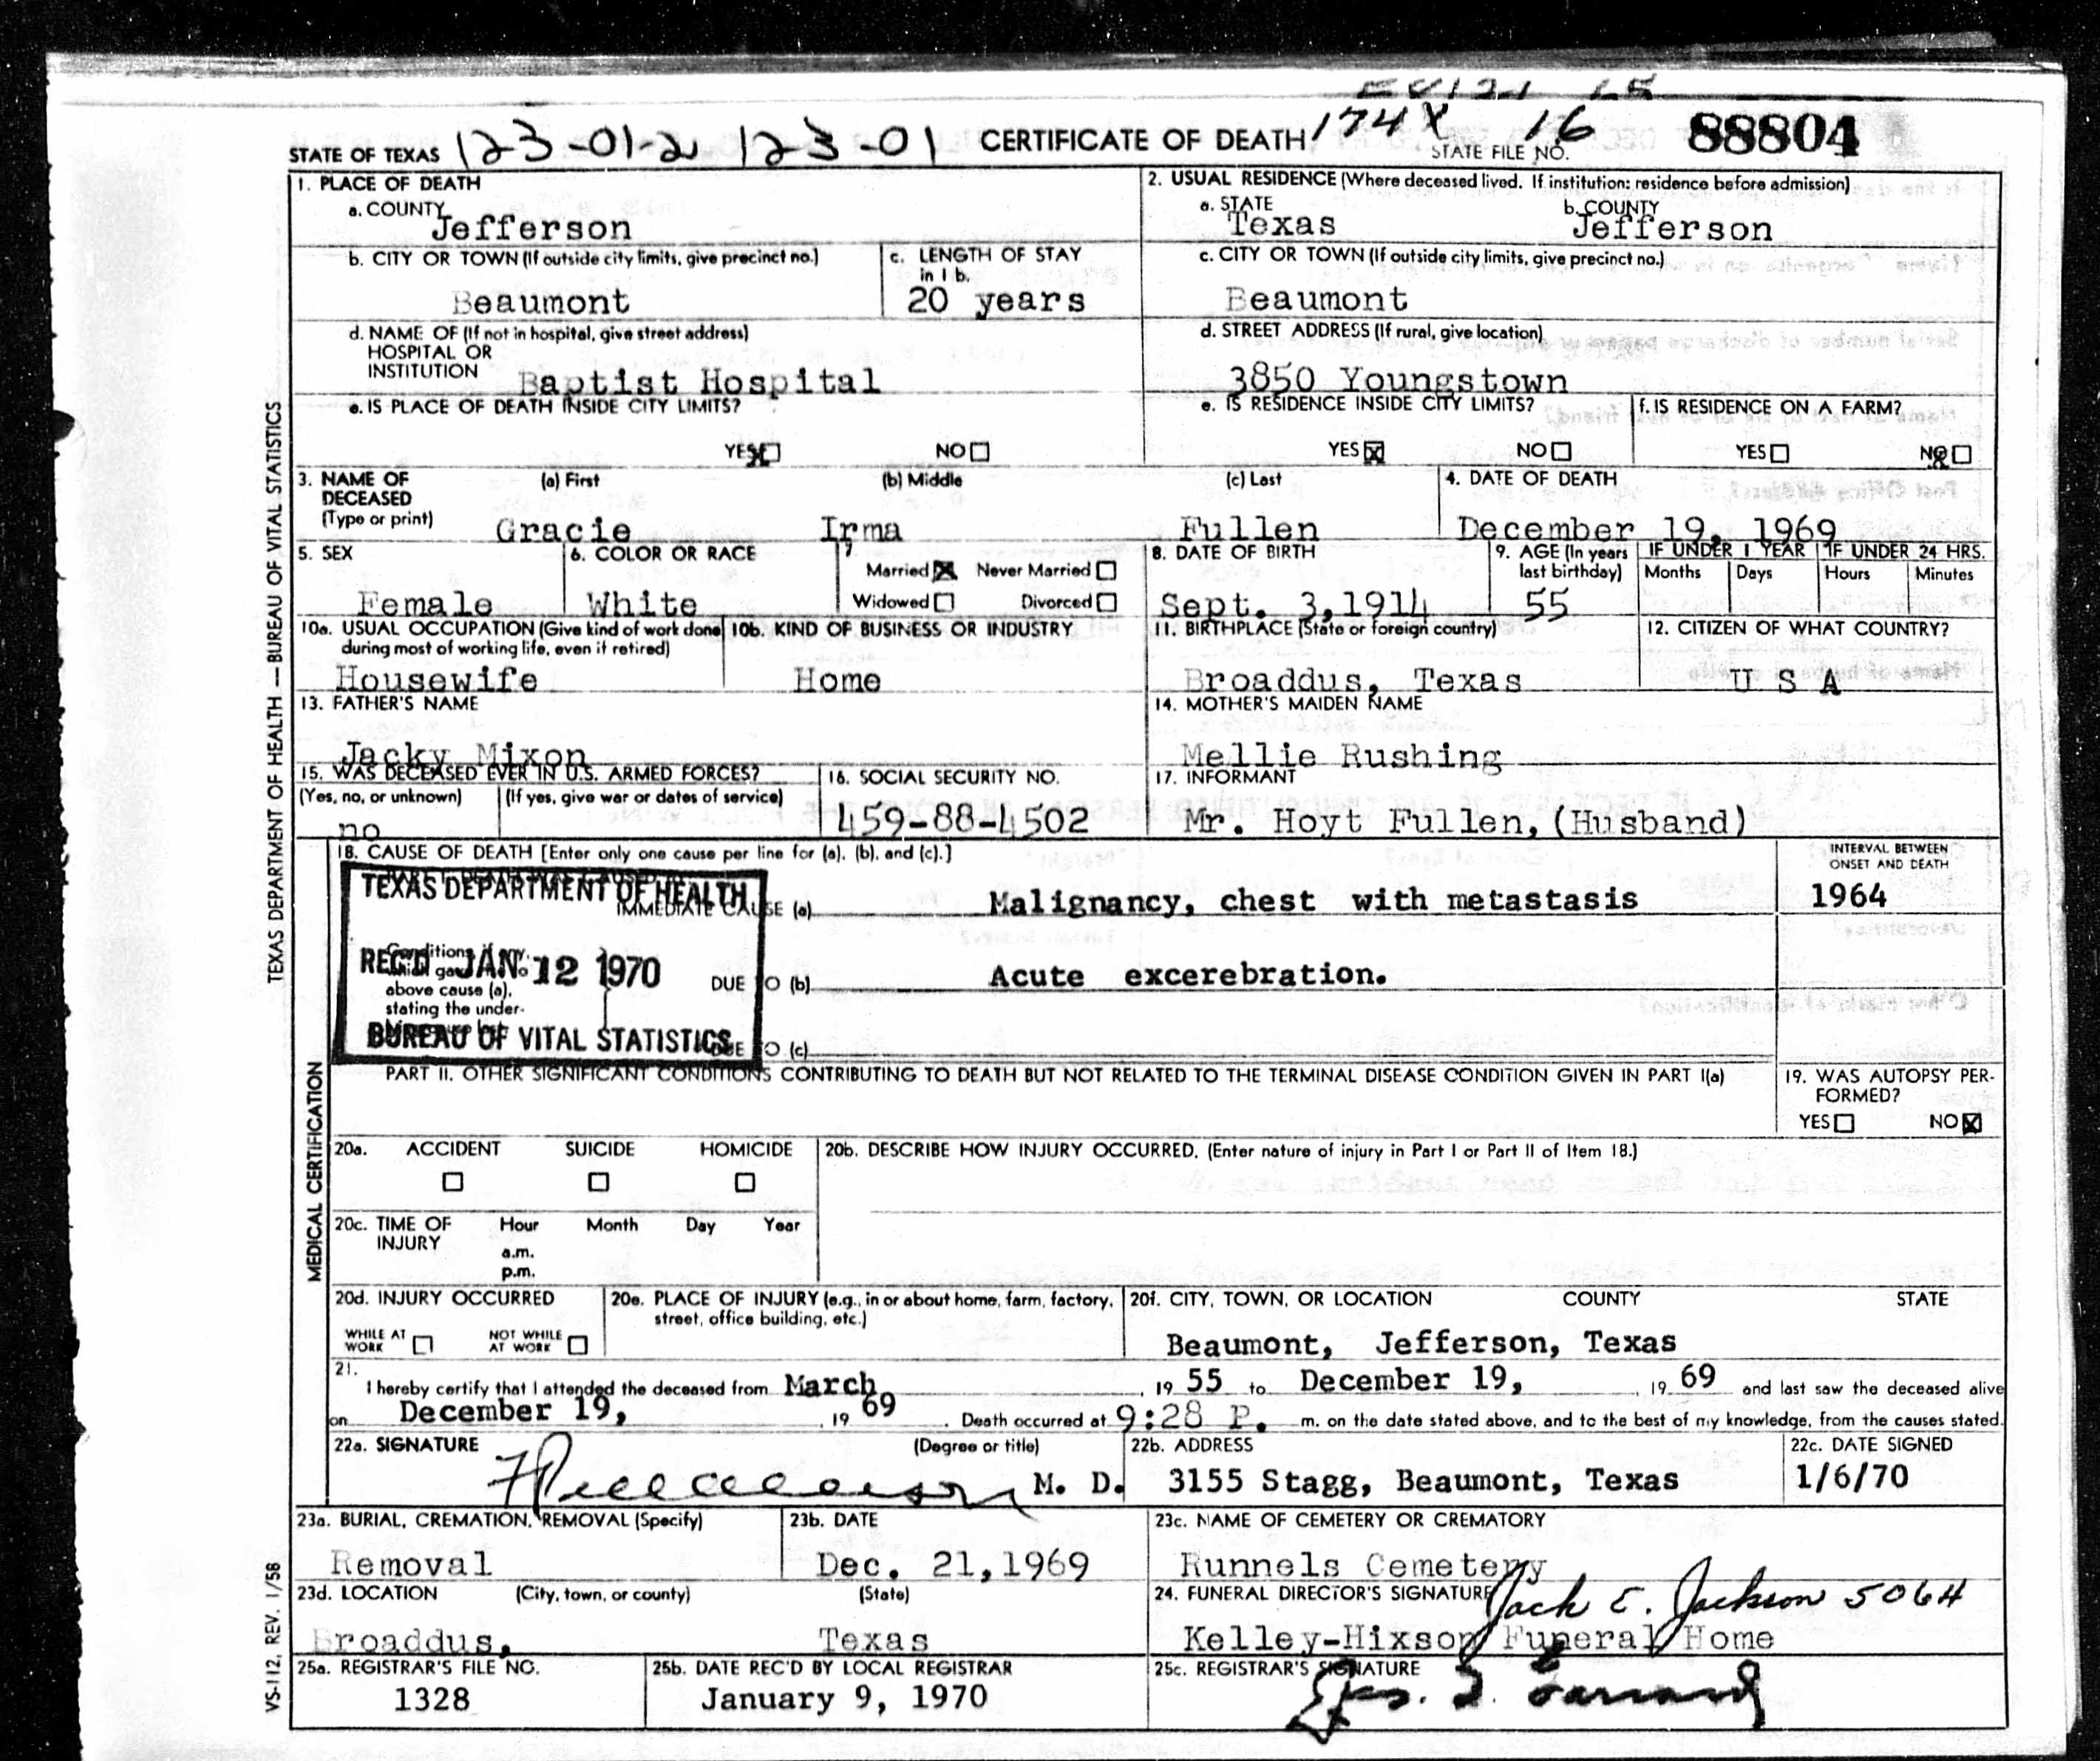 STATE OF TEXAS 123-01-2 123-01 CERTIFICATE OF DEATH 174X 16 STATE FILE NO. 88804
1. PLACE OF DEATH
a. COUNTY Jefferson
2. USUAL RESIDENCE (Where deceased lived. If institution: residence before admission)
a. STATE Texas b. COUNTY Jefferson
b. CITY OR TOWN (If outside city limits, give precinct no.) Beaumont
c. LENGTH OF STAY in 1 b. 20 years
c. CITY OR TOWN (If outside city limits, give precinct no.) Beaumont
d. NAME OF (If not in hospital, give street address)
HOSPITAL OR
INSTITUTION Baptist Hospital
d. STREET ADDRESS (If rural, give location)
3850 Youngstown
e. IS PLACE OF DEATH INSIDE CITY LIMITS?
YES NO
e. IS RESIDENCE INSIDE CITY LIMITS?
YES NO
f. IS RESIDENCE ON A FARM?
YES NO
3. NAME OF DECEASED (Type or print)
(a) First (b) Middle (c) Last
Gracie Irma Fullen
4. DATE OF DEATH
December 19, 1969
5. SEX
Female
6. COLOR OR RACE
White
7
Married Never Married
Widowed Divorced
8. DATE OF BIRTH
Sept. 3,1914
9. AGE (In years last birthday)
55
IF UNDER 1 YEAR IF UNDER 24 HRS.
Months Days Hours Minutes
10a. USUAL OCCUPATION (Give kind of work done during most of working life, even if retired)
Housewife
10b. KIND OF BUSINESS OR INDUSTRY
Home
11. BIRTHPLACE (State or foreign country)
Broaddus, Texas
12. CITIZEN OF WHAT COUNTRY?
U S A
13. FATHER'S NAME
Jacky Mixon
14. MOTHER'S MAIDEN NAME
Mellie Rushing
15. WAS DECEASED EVER IN U.S. ARMED FORCES?
(Yes, no, or unknown) (If yes, give war or dates of service)
no
16. SOCIAL SECURITY NO.
459-88-4502
17. INFORMANT
Mr. Hoyt Fullen, (Husband)
18. CAUSE OF DEATH [Enter only one cause per line for (a), (b), and (c).]
INTERVAL BETWEEN
ONSET AND DEATH
TEXAS DEPARTMENT OF HEALTH
IMMEDIATE CAUSE (a) Malignancy, chest with metastasis 1964
REC'D JAN 12 1970
Conditions, if any,
above cause (a),
stating the under-
DUE TO (b) Acute excerebration.
BUREAU OF VITAL STATISTICS
DUE TO (c)
PART II. OTHER SIGNIFICANT CONDITIONS CONTRIBUTING TO DEATH BUT NOT RELATED TO THE TERMINAL DISEASE CONDITION GIVEN IN PART I(a)
19. WAS AUTOPSY PER-
FORMED?
YES NO
20a. ACCIDENT SUICIDE HOMICIDE
20b. DESCRIBE HOW INJURY OCCURRED. (Enter nature of injury in Part I or Part II of Item 18.)
20c. TIME OF INJURY Hour Month Day Year
a.m.
p.m.
20d. INJURY OCCURRED
WHILE AT WORK NOT WHILE AT WORK
20e. PLACE OF INJURY (e.g., in or about home, farm, factory, street, office building, etc.)
20f. CITY, TOWN, OR LOCATION COUNTY STATE
Beaumont, Jefferson, Texas
21.
I hereby certify that I attended the deceased from March, 19 55 to December 19, 19 69 and last saw the deceased alive
on December 19, 19 69. Death occurred at 9:28 P. m. on the date stated above, and to the best of my knowledge, from the causes stated.
22a. SIGNATURE (Degree or title)
M. D.
22b. ADDRESS
3155 Stagg, Beaumont, Texas
22c. DATE SIGNED
1/6/70
23a. BURIAL, CREMATION, REMOVAL (Specify)
Removal
23b. DATE
Dec. 21,1969
23c. NAME OF CEMETERY OR CREMATORY
Runnels Cemetery
23d. LOCATION (City, town, or county) (State)
Broaddus, Texas
24. FUNERAL DIRECTOR'S SIGNATURE Jack E. Jackson 5064
Kelley-Hixson Funeral Home
25a. REGISTRAR'S FILE NO.
1328
25b. DATE REC'D BY LOCAL REGISTRAR
January 9, 1970
25c. REGISTRAR'S SIGNATURE
TEXAS DEPARTMENT OF HEALTH — BUREAU OF VITAL STATISTICS
MEDICAL CERTIFICATION
VS-112, REV. 1/58